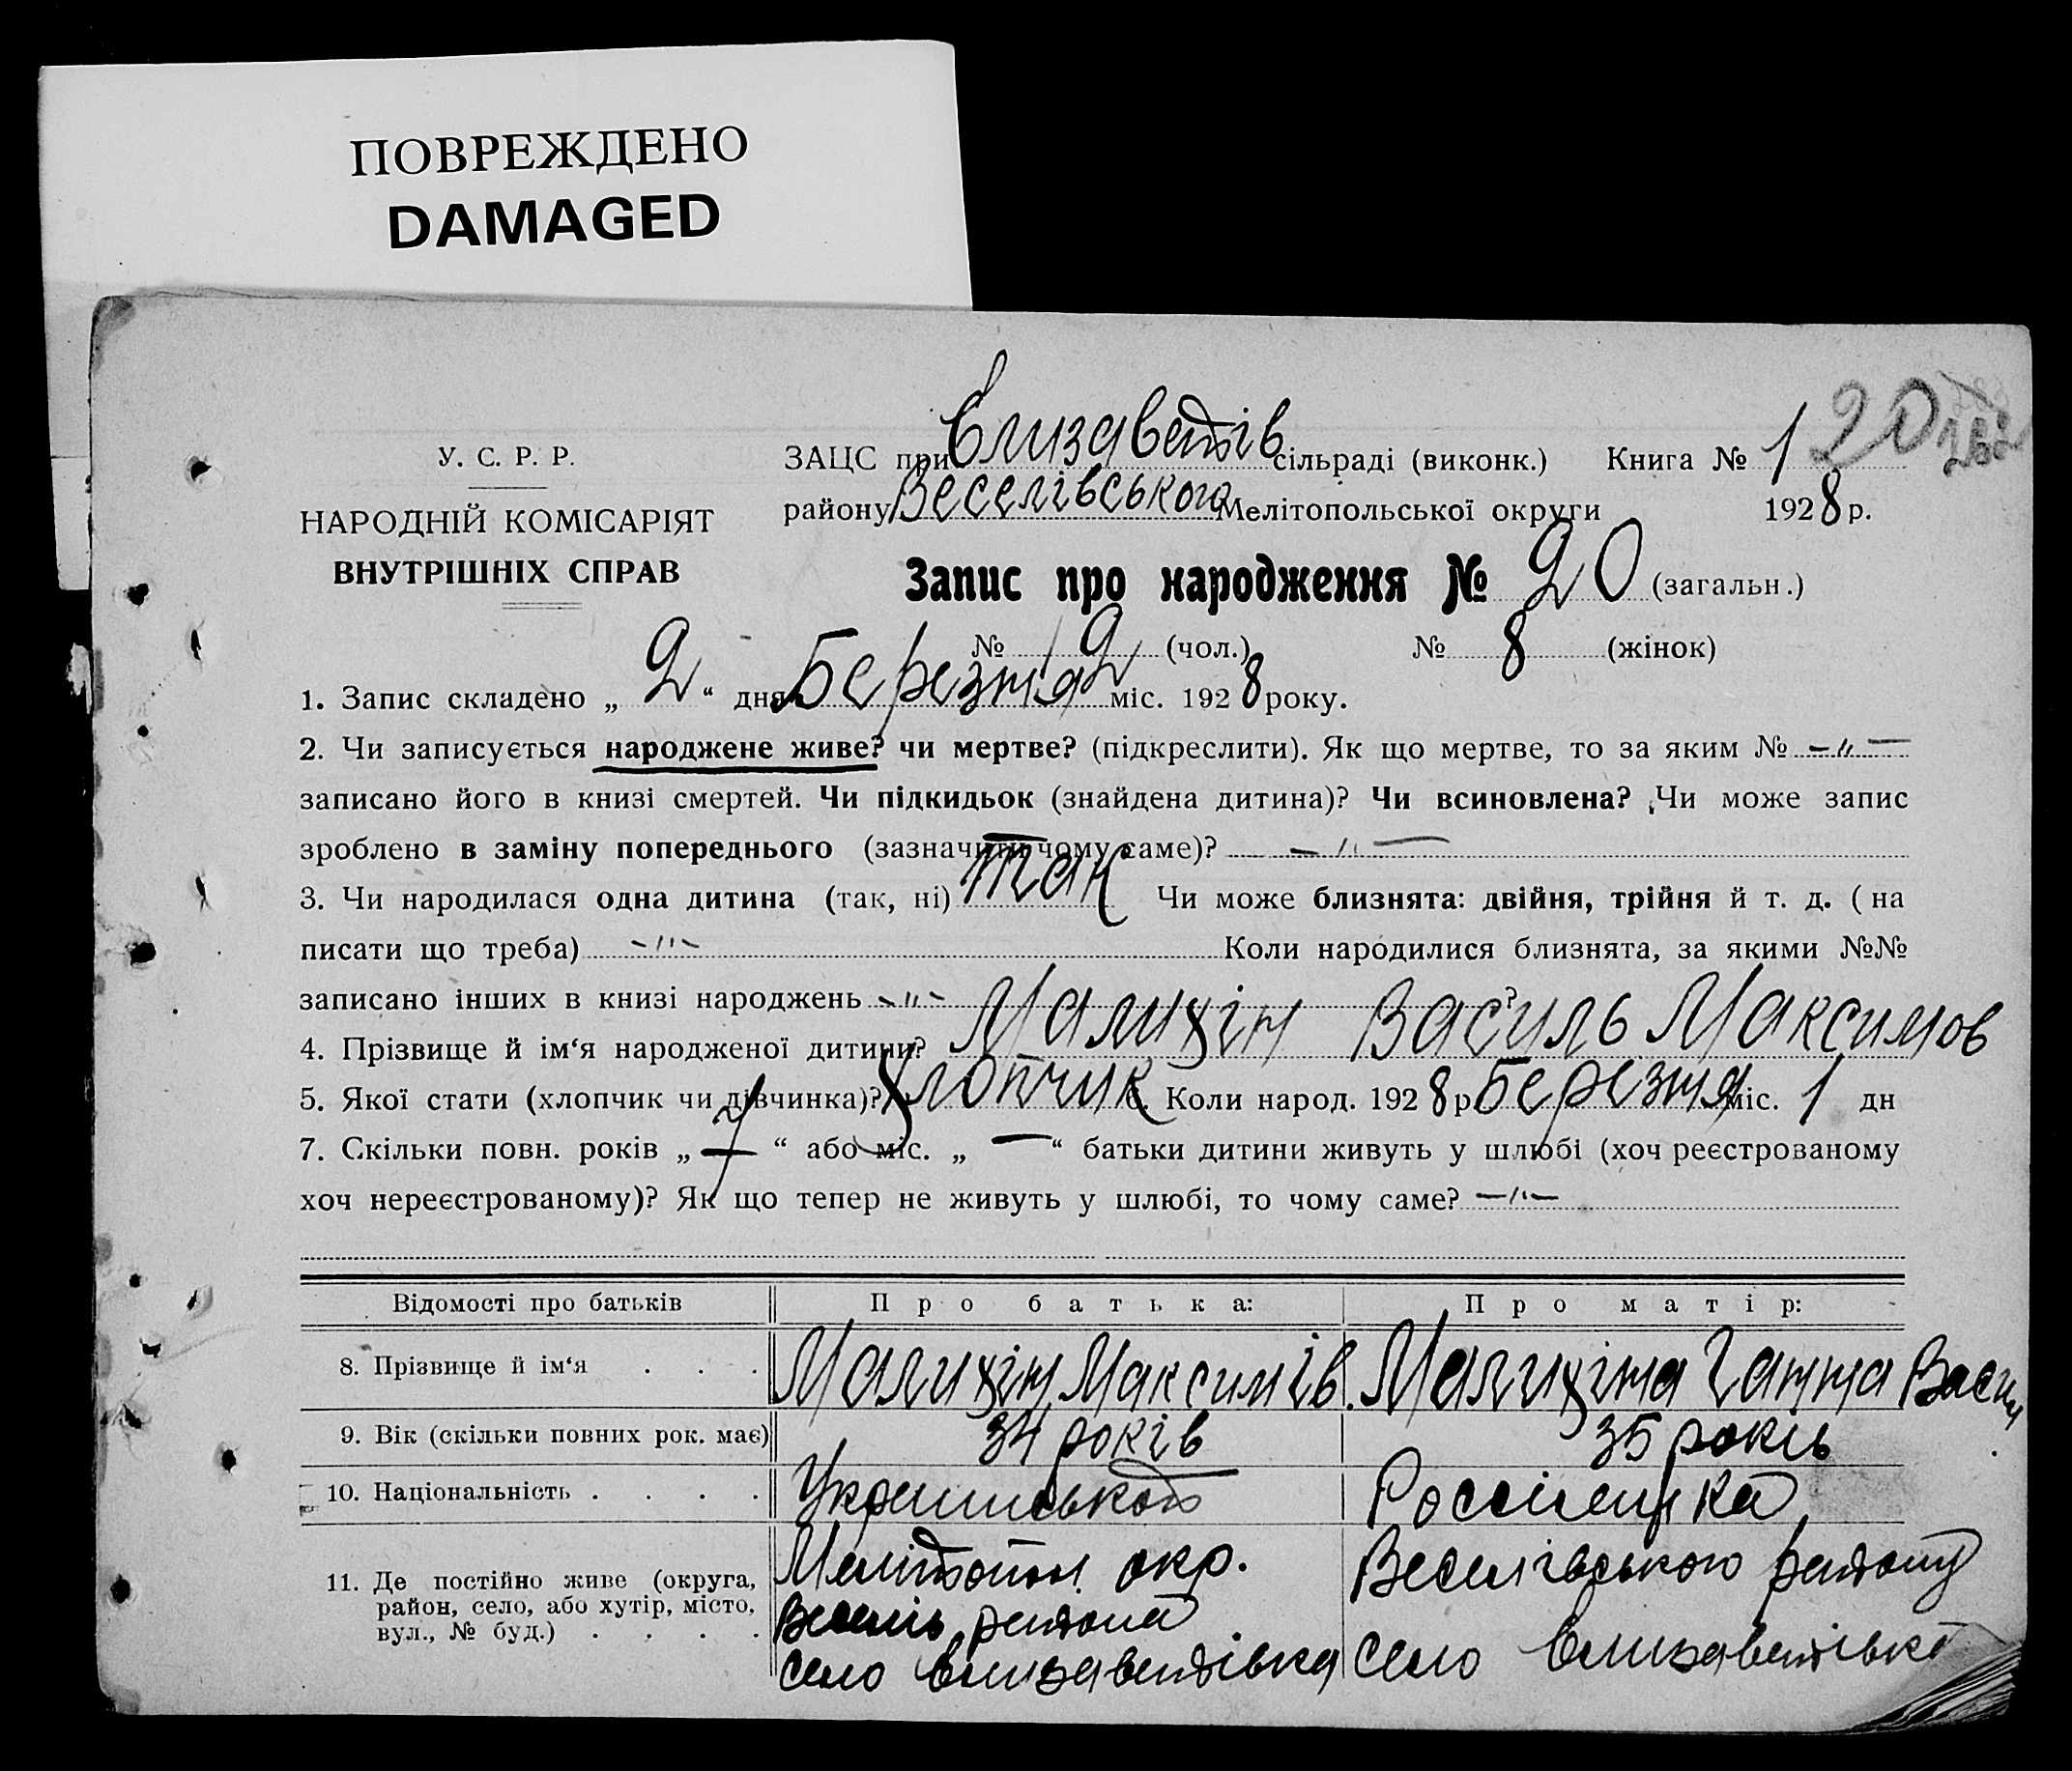 ПОВРЕЖДЕНО
DAMAGED
У. С. Р. Р.
НАРОДНІЙ КОМІСАРІЯТ
ВНУТРІШНІХ СПРАВ
ЗАЦС при Єлизаветів сільраді (виконк.) Книга № 1 20
району Веселівського Мелітопольської округи 1928 р.
Запис про народження № 20 (загальн.)
№ 12 (чол.) № 8 (жінок)
1. Запис складено „ 2 “ дня Березня 2 міс. 1928 року.
2. Чи записується народжене живе? чи мертве? (підкреслити). Як що мертве, то за яким № –"–
записано його в книзі смертей. Чи підкидьок (знайдена дитина)? Чи всиновлена? Чи може запис
зроблено в заміну попереднього (зазначити чому саме)? – " –
3. Чи народилася одна дитина (так, ні) так Чи може близнята: двійня, трійня й т. д. ( на
писати що треба) -"- Коли народилися близнята, за якими №№
записано інших в книзі народжень -"- ?
4. Прізвище й ім‘я народженої дитини? Малихін Василь Максимов
5. Якої стати (хлопчик чи дівчинка)? Хлопчик 6. Коли народ. 1928 р Березня міс. 1 дн
7. Скільки повн. років „ “ або міс. „ — “ батьки дитини живуть у шлюбі (хоч реєстрованому
хоч нереєстрованому)? Як що тепер не живуть у шлюбі, то чому саме? –"–
Відомості про батьків Про батька: Про матір:
8. Прізвище й ім‘я . . . Малихін Максим Ів. Малихіна Ганна Васил
9. Вік (скільки повних рок. має) 34 років 35 років
10. Національність . . . . Росс
11. Де постійно живе (округа, район, село, або хутір, місто, вул., № буд.) . . . .
Мелітопол. окр. Веселівського району
Веселів. района
село Єлизаветівка село Єлизаветівка